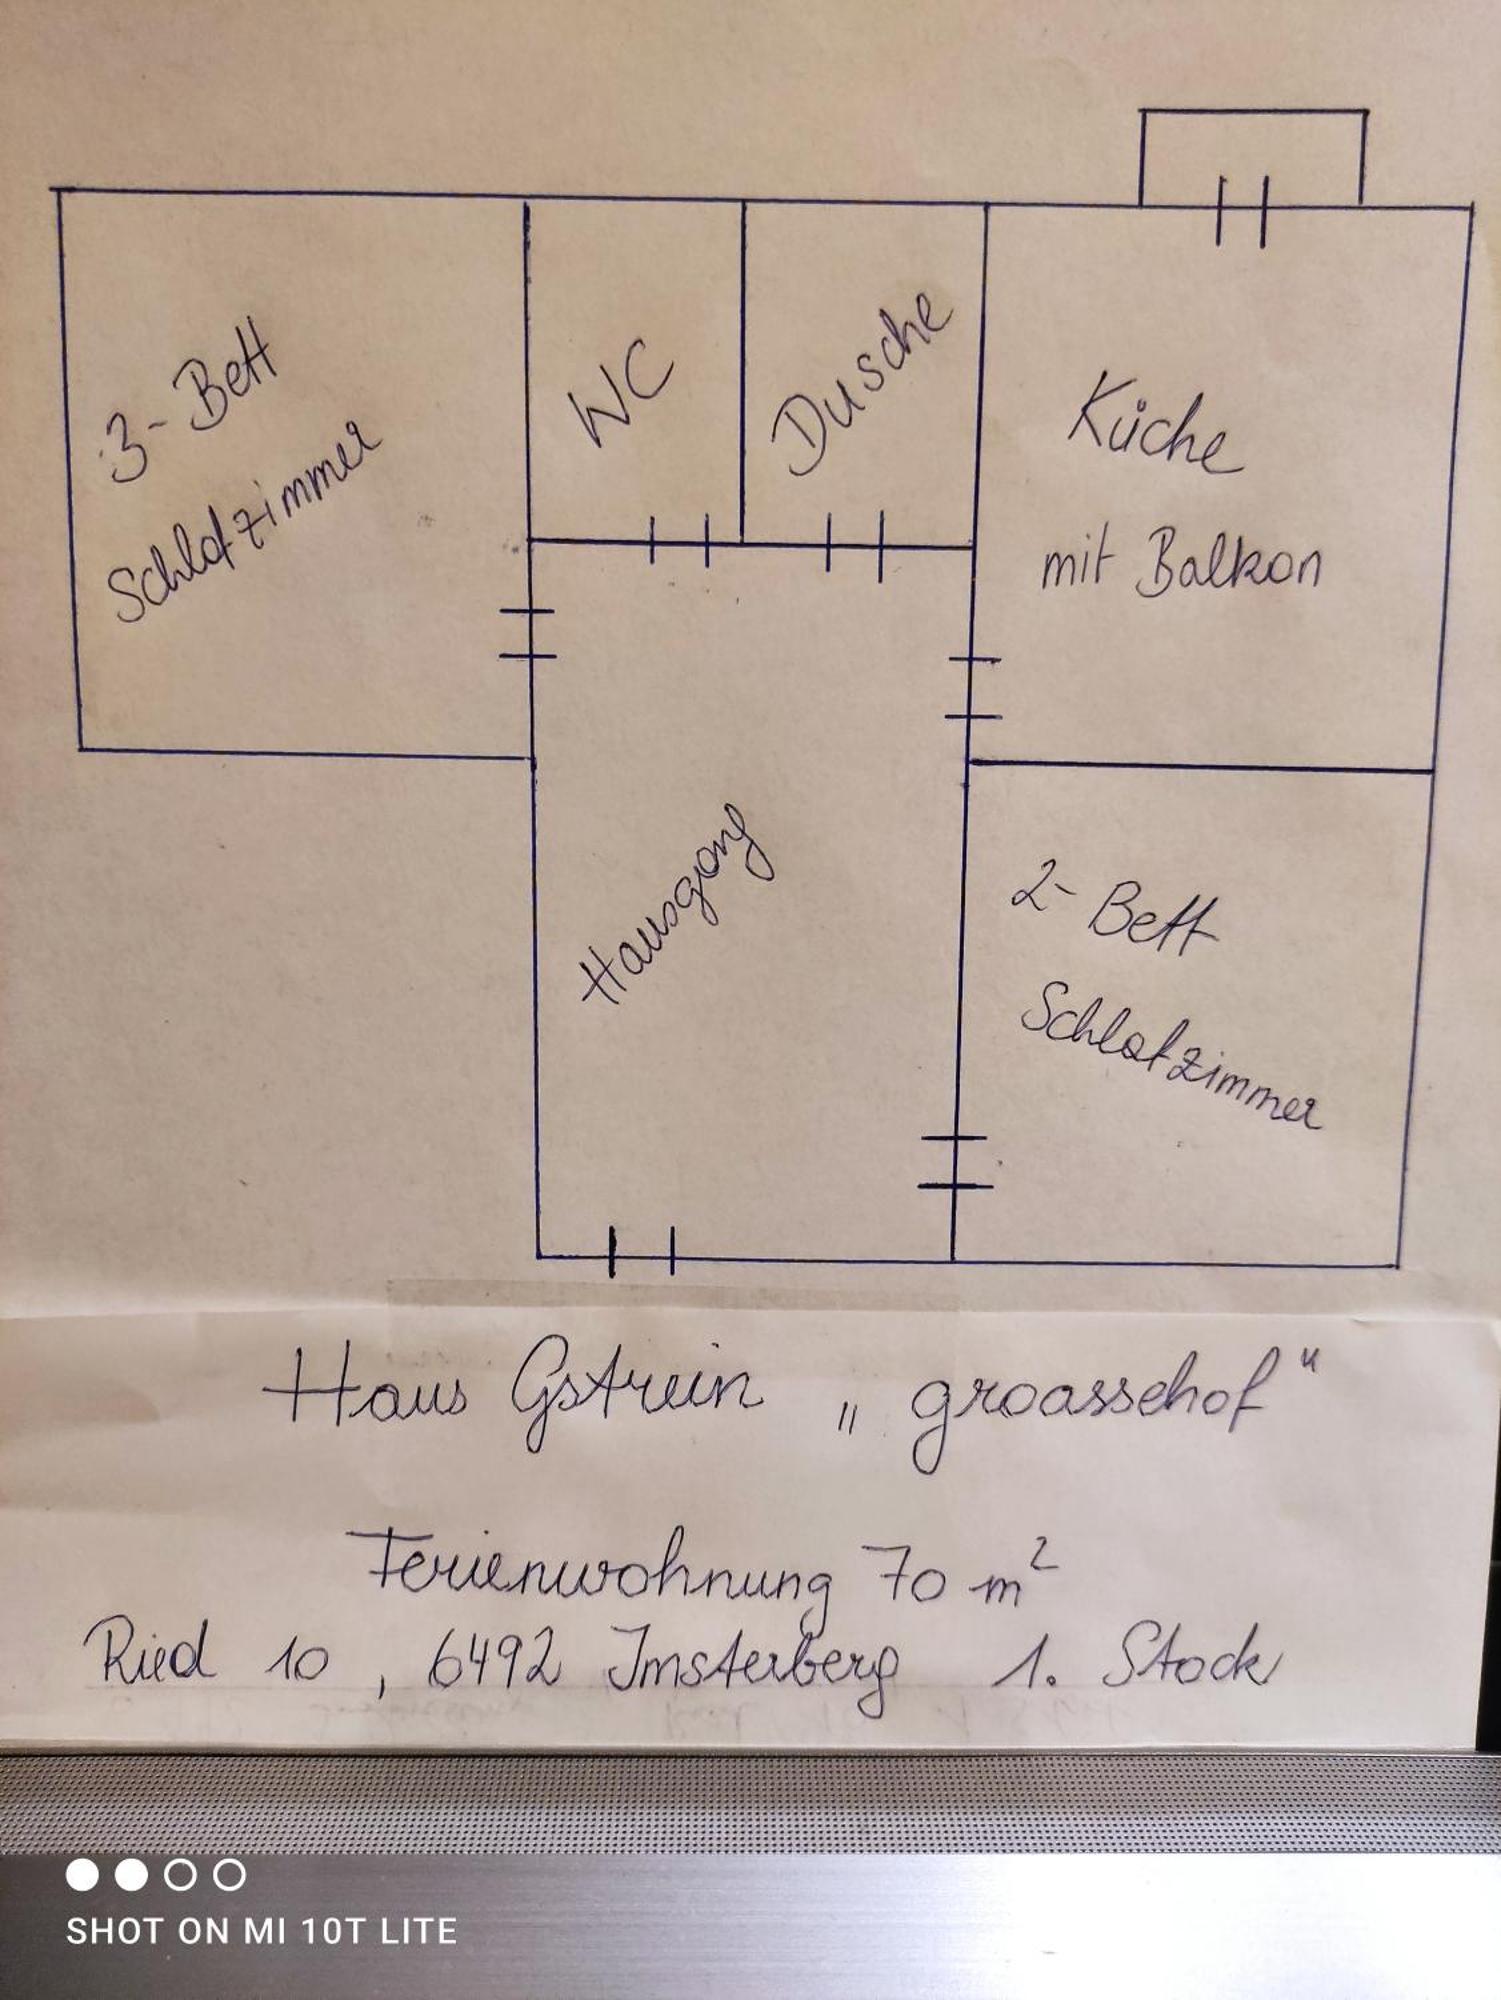 3-Bett
Schlafzimmer
WC
Dusche
Küche
mit Balkon
Hausgang
2-Bett
Schlafzimmer
Haus Gstrein „groassehof“
Ferienwohnung 70 m²
Ried 10, 6492 Imsterberg 1. Stock
SHOT ON MI 10T LITE